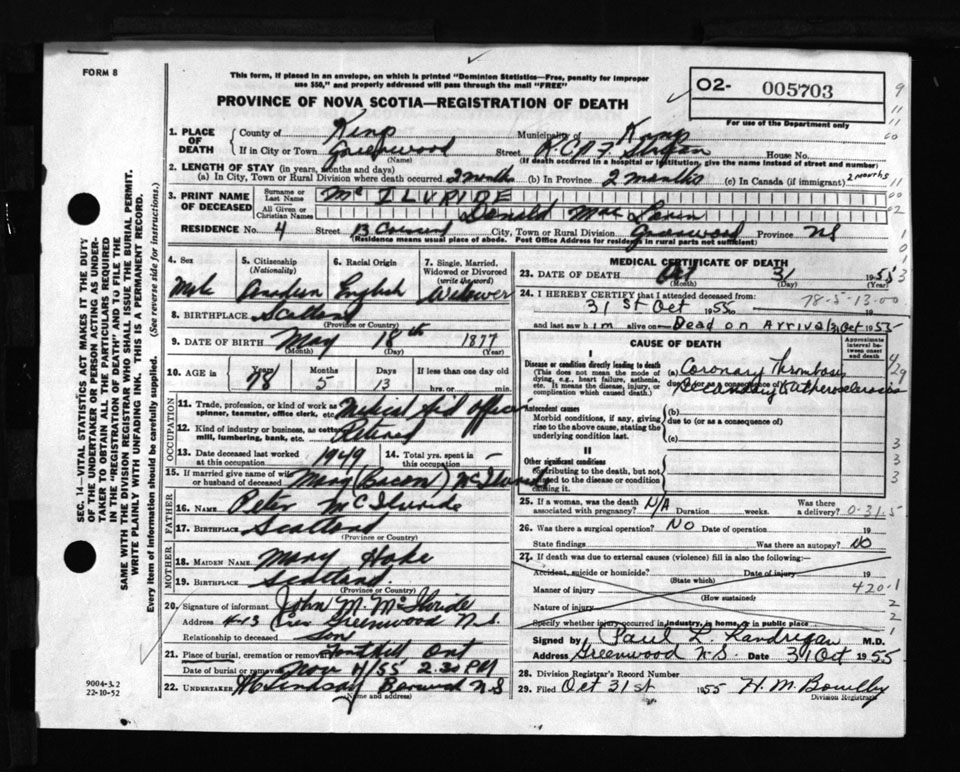 FORM 8
This form, if placed in an envelope, on which is printed "Dominion Statistics—Free, penalty for improper
use $50," and properly addressed will pass through the mail "FREE"
PROVINCE OF NOVA SCOTIA—REGISTRATION OF DEATH
O2- 005703
For use of the Department only
1. PLACE OF DEATH
County of Kings Municipality of Kings
If in City or Town Greenwood Street R.C.A.F. Station House No.
(Name) (If death occurred in a hospital or institution, give the name instead of street and number)
2. LENGTH OF STAY (in years, months and days)
(a) In City, Town or Rural Division where death occurred 2 months (b) In Province 2 months (c) In Canada (if immigrant) 2 months
3. PRINT NAME OF DECEASED
Surname or Last Name Mc ILVRIDE
All Given or Christian Names Donald Mac Laren
RESIDENCE No. 4 Street 13 Crescent City, Town or Rural Division Greenwood Province NS
(Residence means usual place of abode. Post Office Address for residents in rural parts not sufficient)
4. Sex Male
5. Citizenship (Nationality) Canadian
6. Racial Origin English
7. Single, Married, Widowed or Divorced (write the word) Widower
8. BIRTHPLACE Scotland
(Province or Country)
9. DATE OF BIRTH May 18th 1877
(Month) (Day) (Year)
10. AGE in Years 78 Months 5 Days 13 If less than one day old
hrs. or min.
OCCUPATION
11. Trade, profession, or kind of work as spinner, teamster, office clerk, etc. Medical officer
12. Kind of industry or business, as cotton mill, lumbering, bank, etc. Retired
13. Date deceased last worked at this occupation 1949
14. Total yrs. spent in this occupation –
15. If married give name of wife or husband of deceased Mary (Bacon) McIlvride
FATHER
16. Name Peter McIlvride
17. Birthplace Scotland
(Province or Country)
MOTHER
18. MAIDEN NAME Mary
19. BIRTHPLACE Scotland.
(Province or Country)
20. Signature of informant John M. McIlvride
Address Greenwood N.S.
Relationship to deceased Son
21. Place of burial, cremation or removal Fonthill Ont
Date of burial or removal Nov 4/55 2.30 PM
22. UNDERTAKER Lindsay Berwick N.S
(Name and address)
MEDICAL CERTIFICATE OF DEATH
23. DATE OF DEATH Oct 31 1955
(Month) (Day) (Year)
24. I HEREBY CERTIFY that I attended deceased from:
78-5-13-00
31st Oct 1955 to 19
and last saw him alive on Dead on Arrival 31 Oct 1955
CAUSE OF DEATH
Approximate interval between onset and death
I
Disease or condition directly leading to death
(This does not mean the mode of dying, e.g., heart failure, asthenia, etc. It means the disease, injury, or complication which caused death.)
(a) Coronary Thrombosis
due to (or as a consequence of)
Secondary to Atherosclerosis
Antecedent causes
Morbid conditions, if any, giving rise to the above cause, stating the underlying condition last.
(b)
due to (or as a consequence of)
(c)
II
Other significant conditions
contributing to the death, but not related to the disease or condition causing it.
25. If a woman, was the death associated with pregnancy? N/A Duration weeks. Was there a delivery? 0-31.5
26. Was there a surgical operation? NO Date of operation 19
State findings Was there an autopsy? NO
27. If death was due to external causes (violence) fill in also the following:—
Accident, suicide or homicide? Date of injury 19
(State which)
Manner of injury 420-1
(How sustained)
Nature of injury
Specify whether injury occurred in industry, in home, or in public place
Signed by Paul L. Landrigan M.D.
Address Greenwood N.S. Date 31 Oct 1955
28. Division Registrar's Record Number
29. Filed Oct 31st 1955 H. M. Bowlby
Division Registrar
SEC. 14—VITAL STATISTICS ACT MAKES IT THE DUTY
OF THE UNDERTAKER OR PERSON ACTING AS UNDERTAKER
TO OBTAIN ALL THE PARTICULARS REQUIRED
IN THE "REGISTRATION OF DEATH" AND TO FILE THE
SAME WITH THE DIVISION REGISTRAR WHO SHALL ISSUE THE BURIAL PERMIT.
WRITE PLAINLY WITH UNFADING INK. THIS IS A PERMANENT RECORD.
Every item of information should be carefully supplied. (See reverse side for instructions.)
9004-3.2
22-10-52